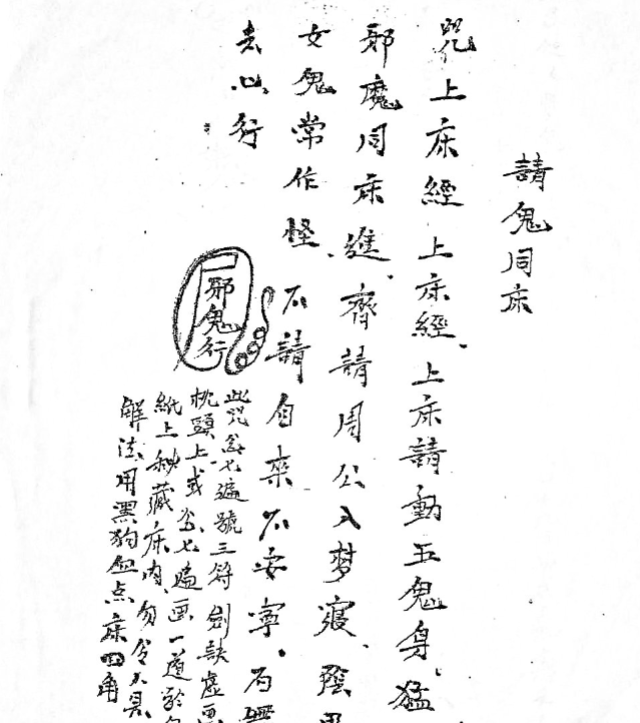 請鬼同床
咒上床經上床經上床請動五鬼身猛
邪魔同床進齊請周公入梦寢陰
女鬼常作怪不請自來不安寧
去心行
邪鬼行
此咒念七遍號三符劍訣虛画
枕頭上或念七遍画一道於
紙上秘藏床内勿令人見
解法用黑狗血点床四角